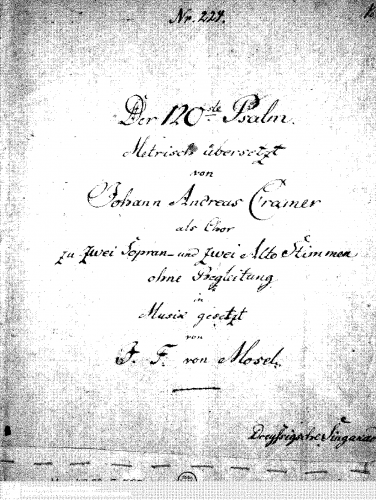 Nr. 224.
Der 120ste Psalm.
Metrisch übersetzt
von
Johann Andreas Cramer
als Chor
zu zwei Sopran- und zwei Alto Stimmen
ohne Begleitung
in
Musik gesetzt
von
J. F. von Mosel.
Dreyssigsche Singakad